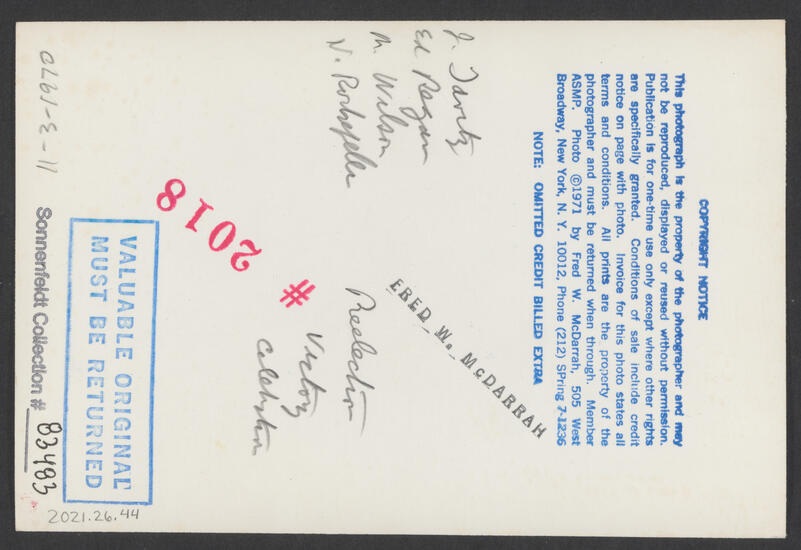 COPYRIGHT NOTICE
This photograph is the property of the photographer and may
not be reproduced, displayed or reused without permission.
Publication is for one-time use only except where other rights
are specifically granted. Conditions of sale include credit
notice on page with photo. Invoice for this photo states all
terms and conditions. All prints are the property of the
photographer and must be returned when through. Member
ASMP. Photo ©1971 by Fred W. McDarrah, 505 West
Broadway, New York, N. Y. 10012, Phone (212) SPring 7-1236
NOTE: OMITTED CREDIT BILLED EXTRA
J. Javits
Ed Regan
M. Wilson
N. Rockefeller
FRED W. McDARRAH
Reelection
Victory
Celebration
# 2018
11-3-1970
VALUABLE ORIGINAL
MUST BE RETURNED
Sonnenfeldt Collection # 83483
2021.26.44